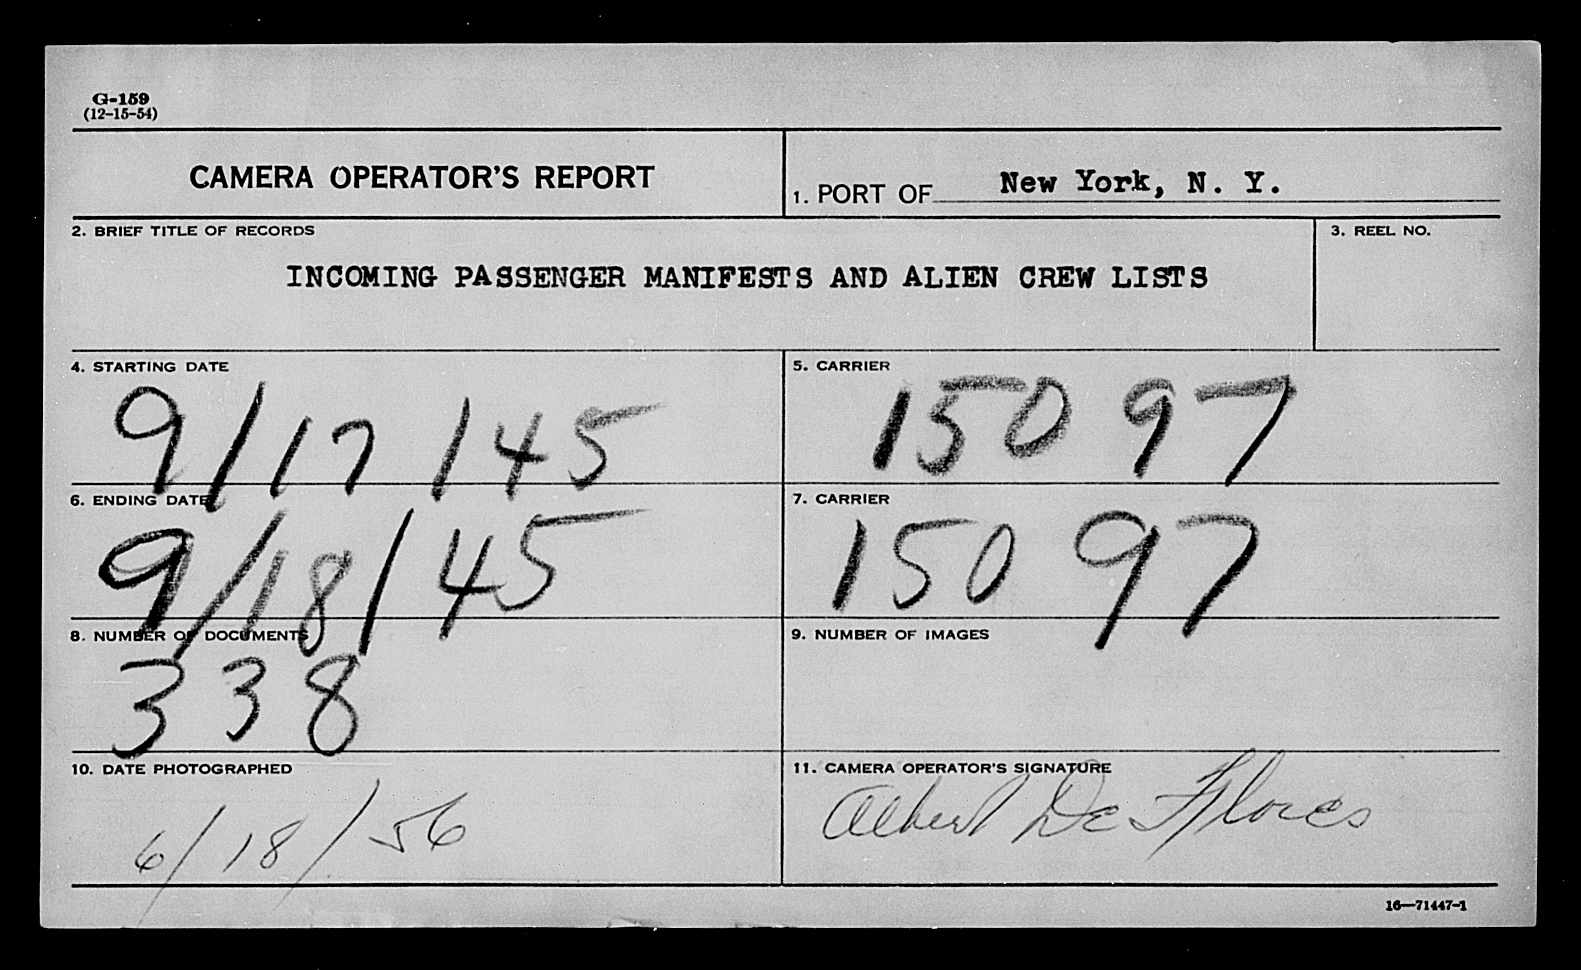 G-159
(12-15-54)
CAMERA OPERATOR'S REPORT
1. PORT OF New York, N. Y.
2. BRIEF TITLE OF RECORDS
INCOMING PASSENGER MANIFESTS AND ALIEN CREW LISTS
3. REEL NO.
4. STARTING DATE
9/17/45
5. CARRIER
15097
6. ENDING DATE
9/18/45
7. CARRIER
15097
8. NUMBER OF DOCUMENTS
338
9. NUMBER OF IMAGES
10. DATE PHOTOGRAPHED
6/18/56
11. CAMERA OPERATOR'S SIGNATURE
Albert De Flores
16—71447-1